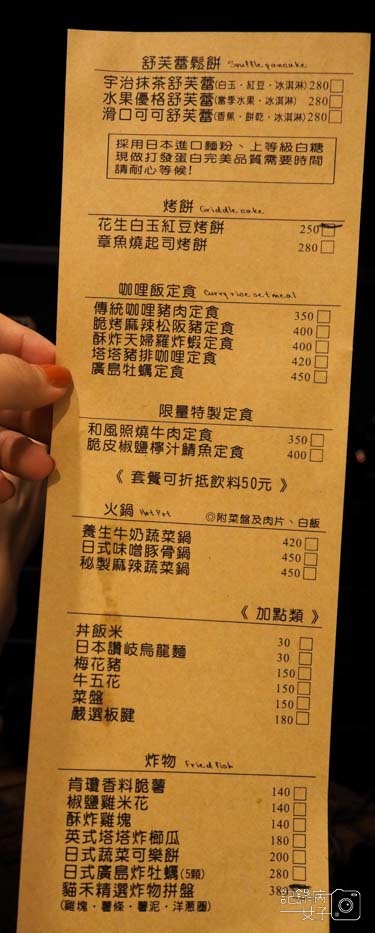 舒芙蕾鬆餅 Souffle pancake
宇治抹茶舒芙蕾(白玉·紅豆·冰淇淋) 280
水果優格舒芙蕾(當季水果·冰淇淋) 280
滑口可可舒芙蕾(香蕉·餅乾·冰淇淋) 280
採用日本進口麵粉、上等級白糖
現做打發蛋白完美品質需要時間
請耐心等候!
烤餅 Griddle cake
花生白玉紅豆烤餅 250
章魚燒起司烤餅 280
咖哩飯定食 Curry rice set meal
傳統咖哩豬肉定食 350
脆烤麻辣松阪豬定食 400
酥炸天婦羅炸蝦定食 400
塔塔豬排咖哩定食 420
廣島牡蠣定食 450
限量特製定食
和風照燒牛肉定食 350
脆皮椒鹽檸汁鯖魚定食 400
《 套餐可折抵飲料50元 》
火鍋 Hot Pot ◎附菜盤及肉片、白飯
養生牛奶蔬菜鍋 420
日式味噌豚骨鍋 450
秘製麻辣蔬菜鍋 450
《 加點類 》
丼飯米 30
日本讚岐烏龍麵 30
梅花豬 150
牛五花 150
菜盤 150
嚴選板腱 180
炸物 Fried fish
肯瓊香料脆薯 140
椒鹽雞米花 140
酥炸雞塊 140
英式塔塔炸櫛瓜 180
日式蔬菜可樂餅 200
日式廣島炸牡蠣(5顆) 280
貓禾精選炸物拼盤 380
(雞塊·薯條·薯泥·洋蔥圈)
記錄病
女子